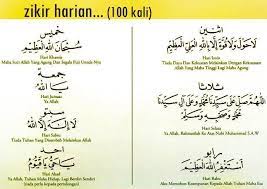 zikir harian... (100 kali)
اثنين
لَا حَوْلَ وَلَا قُوَّةَ إِلَّا بِاللهِ الْعَلِيِّ الْعَظِيْمِ
Hari Isnin
Tiada Daya Dan Kekuatan Melainkan Dengan Kekuasaan
Allah Yang Maha Tinggi Lagi Maha Agung
ثلاثا
اللَّهُمَّ صَلِّ عَلَى سَيِّدِنَا مُحَمَّدٍ وَعَلَى آلِ سَيِّدِنَا مُحَمَّدٍ
Hari Selasa
Ya Allah, Rahmatilah Ke Atas Nabi Muhammad S.A.W
رابو
أَسْتَغْفِرُ اللهَ الْعَظِيْمَ
Hari Rabu
Aku Memohon Keampunan Kepada Allah Yang Maha
خميس
سُبْحَانَ اللهِ الْعَظِيْمِ
Hari Khamis
Maha Suci Allah Yang Agung Dan Segala Puji Untuk-Nya
جمعة
يَا الله
Hari Jumaat
Ya Allah
سبتو
لَا إِلَهَ إِلَّا الله
Hari Sabtu
Tiada Tuhan Yang Disembah Melainkan Allah
احد
يَا حَيُّ يَا قَيُّوْمُ
Hari Ahad
Ya Allah, Tuhan Maha Hidup, Lagi Berdiri Sendiri
(tiada perlu kepada pertolongan)